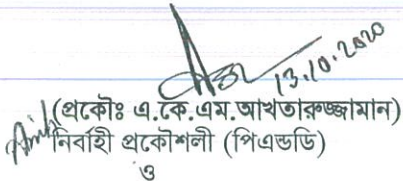 13.10.2020
(প্রকৌঃ এ.কে.এম.আখতারুজ্জামান)
নির্বাহী প্রকৌশলী (পিএন্ডডি)
ও